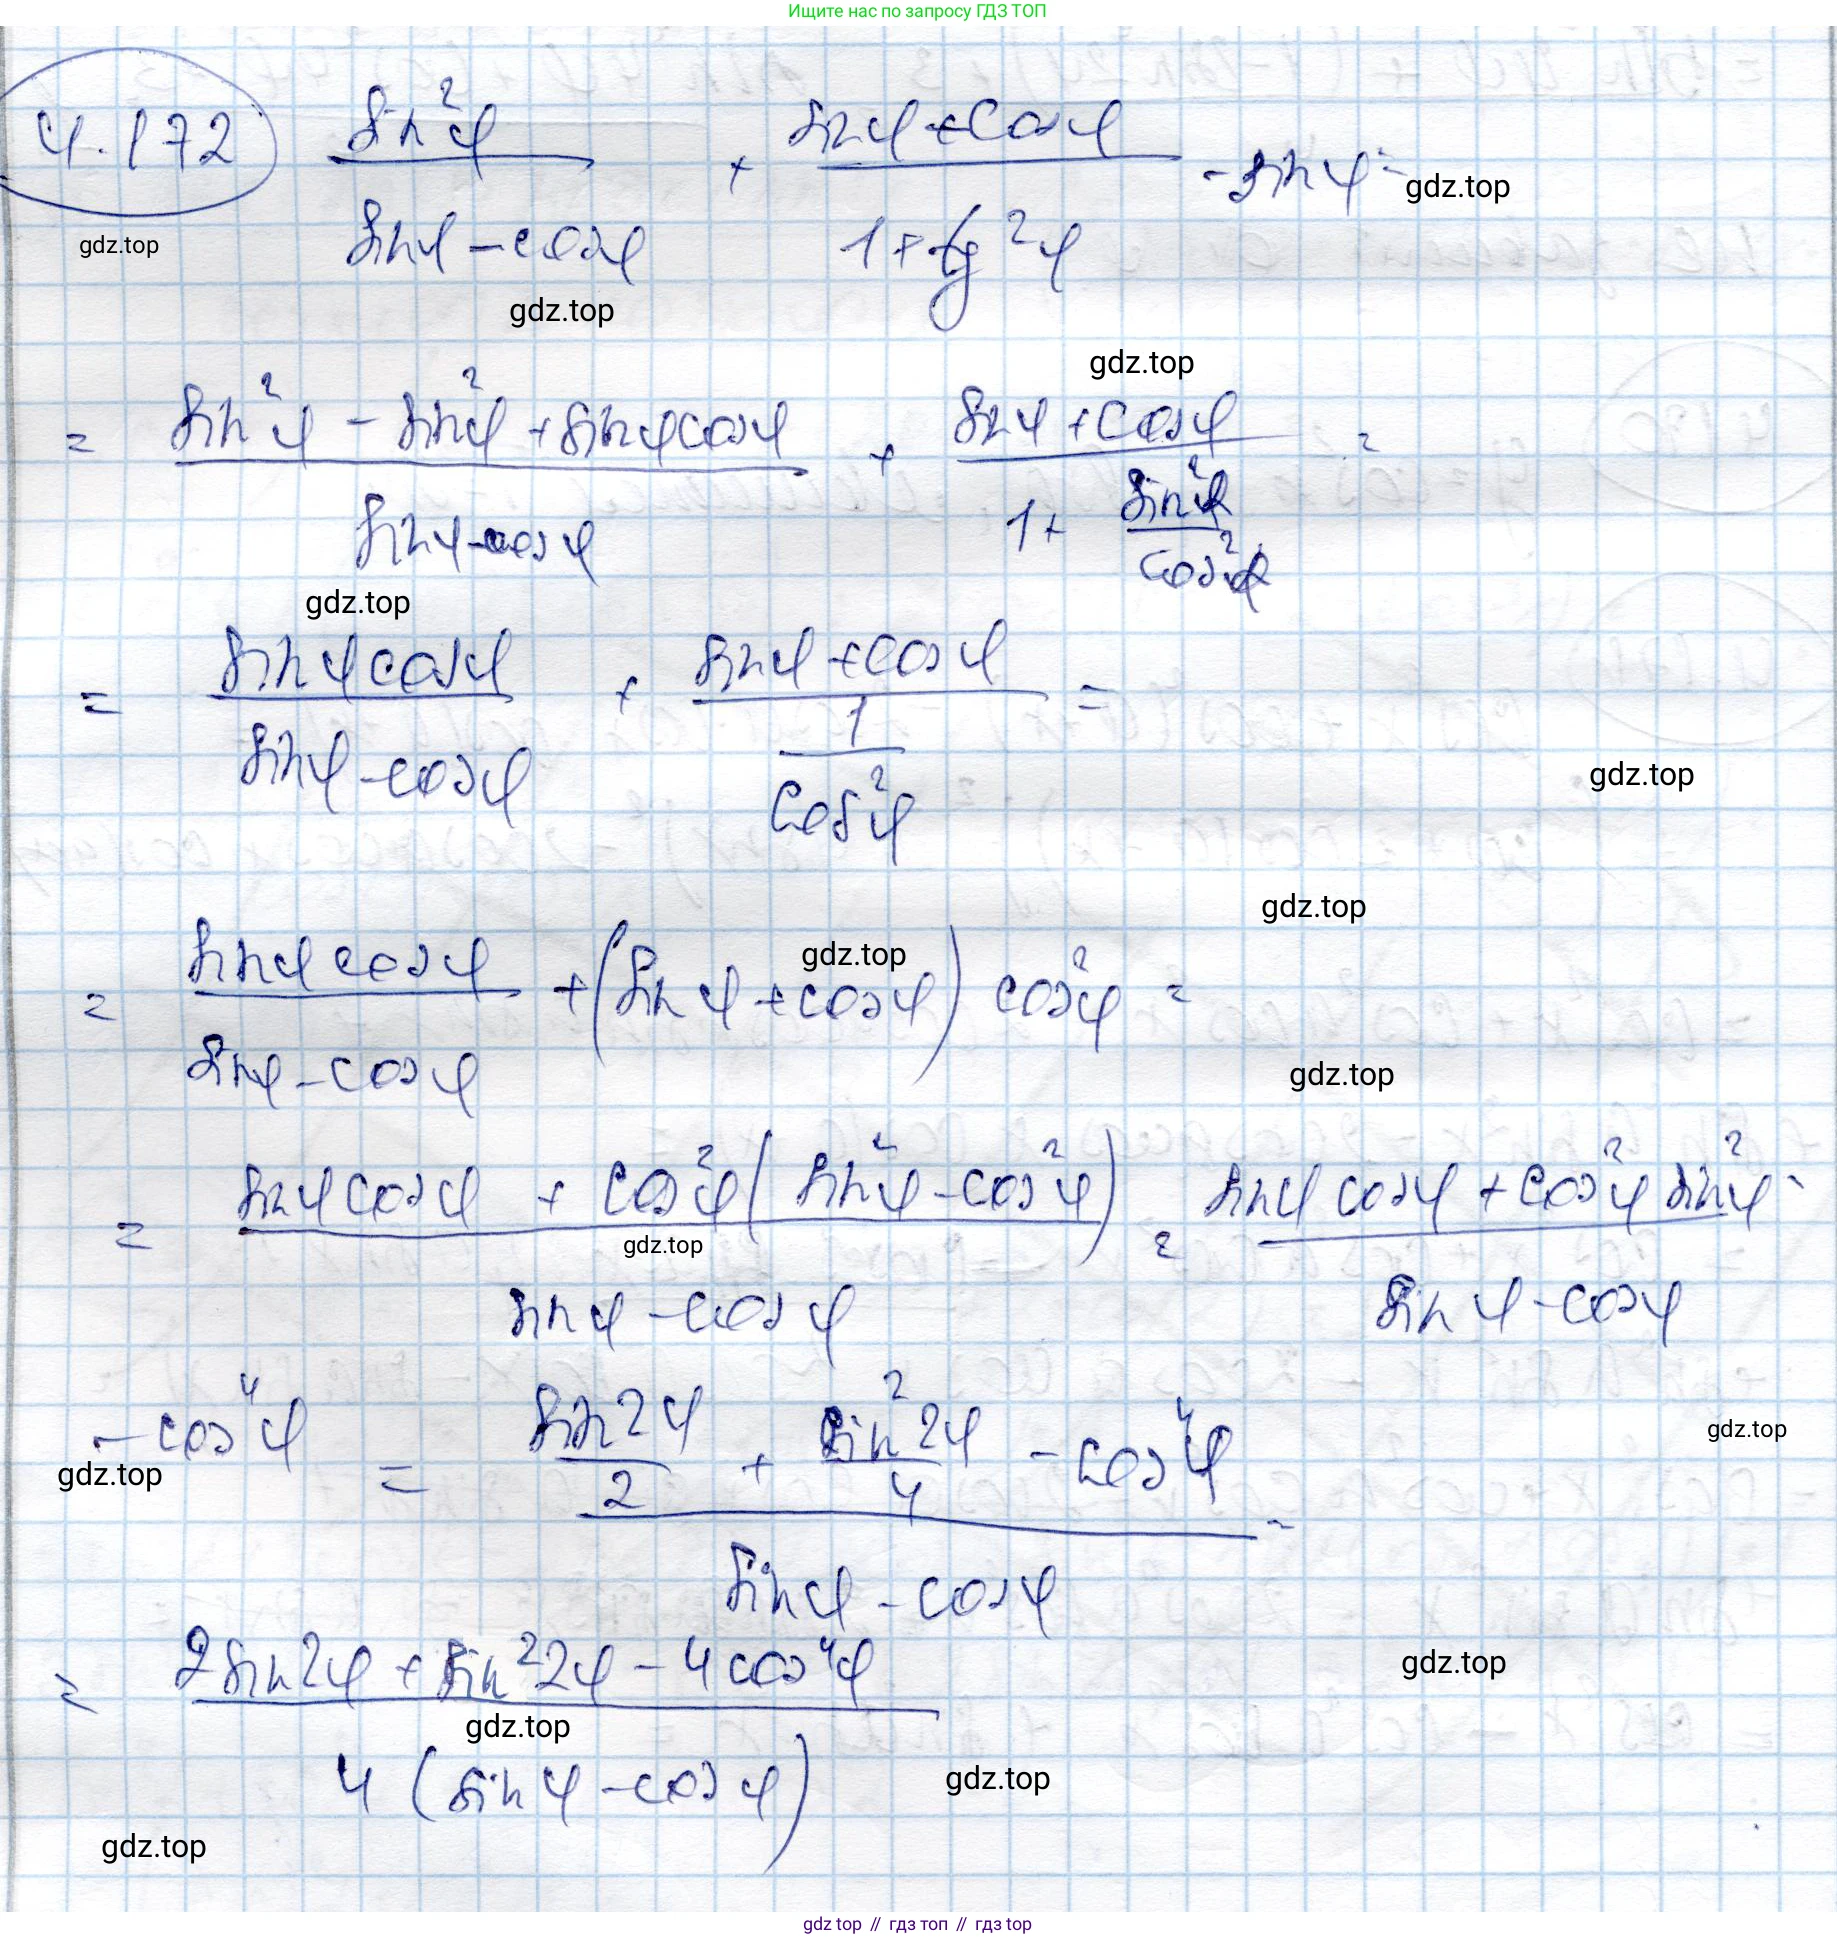 Ищите нас по запросу ГДЗ ТОП
4.172 sin²φ / (sinφ - cosφ) + (sinφ + cosφ) / (1 + tg²φ) - sinφ =
gdz.top
gdz.top
gdz.top
gdz.top
= (sin²φ - sin²φ + sinφcosφ) / (sinφ - cosφ) + (sinφ + cosφ) / (1 + sin²φ / cos²φ) =
gdz.top
= sinφcosφ / (sinφ - cosφ) + (sinφ + cosφ) / (1 / cos²φ) =
gdz.top
gdz.top
gdz.top
= sinφcosφ / (sinφ - cosφ) + (sinφ + cosφ) cos²φ =
gdz.top
= (sinφcosφ + cos²φ(sin²φ - cos²φ)) / (sinφ - cosφ) = (sinφcosφ + cos²φ sin²φ - / (sinφ - cosφ)
gdz.top
- cos⁴φ = (sin2φ / 2 + sin²2φ / 4 - cos⁴φ) / (sinφ - cosφ) =
gdz.top
gdz.top
= (2sin2φ + sin²2φ - 4cos⁴φ) / 4(sinφ - cosφ)
gdz.top
gdz.top
gdz.top
gdz.top
gdz top // гдз топ // гдз top